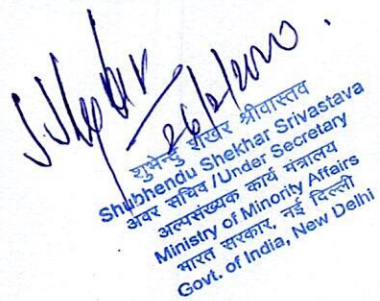 26/2/2020.
शुभेन्दु शेखर श्रीवास्तव
Shubhendu Shekhar Srivastava
अवर सचिव /Under Secretary
अल्पसंख्यक कार्य मंत्रालय
Ministry of Minority Affairs
भारत सरकार, नई दिल्ली
Govt. of India, New Delhi